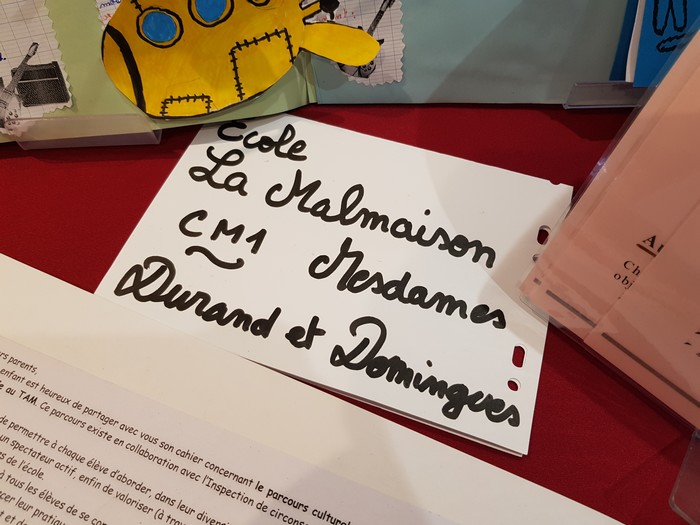 Ecole
La Malmaison
CM1 Mesdames
Durand et Domingues
rs parents,
enfant est heureux de partager avec vous son cahier concernant le parcours culturel
au TAM. Ce parcours existe en collaboration avec l'Inspection de circons
de permettre à chaque élève d'aborder, dans leur diversi
un spectateur actif, enfin de valoriser (à trav
rs de l'école.
à tous les élèves de se con
cer leur pratiqu
Ch
obj